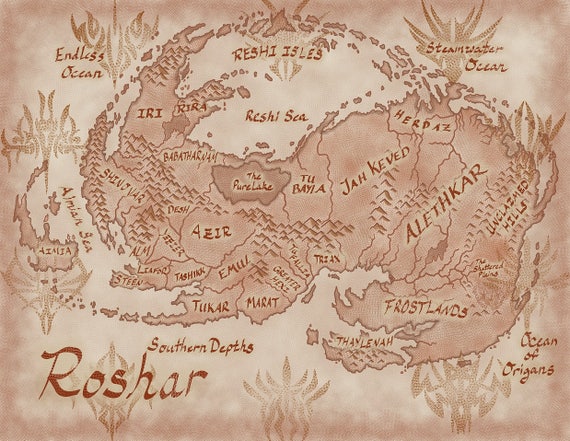 Endless
Ocean
RESHI ISLES
Steamwater
Ocean
IRI
RIRA
Reshi Sea
HERDAZ
BABATHARNAM
The
PureLake
TU
BAYLA
JAH KEVED
ALETHKAR
UNCLAIMED
HILLS
SHINOVAR
DESH
AZIR
Aimian Sea
AIMIA
ALM
YEZIER
LIAFOR
STEEN
TASHIKK
EMUL
GREATER
HEXI
TRIAX
The
Shattered
Plains
TUKAR
MARAT
FROSTLANDS
THAYLENAH
Southern Depths
Ocean
of
Origins
Roshar